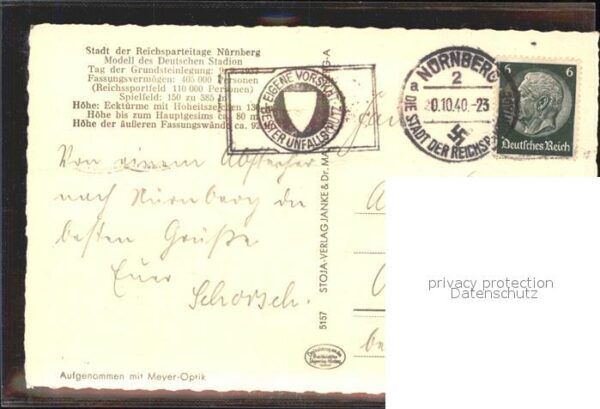 Stadt der Reichsparteitage Nürnberg
Modell des Deutschen Stadion
Tag der Grundsteinlegung: 9.
Fassungsvermögen: 405 000 Personen
(Reichssportfeld 110 000 Personen)
Spielfeld: 150 zu 385
Höhe: Ecktürme mit Hoheitszeichen 13
Höhe bis zum Hauptgesims ca. 80
Höhe der äußeren Fassungswände ca. 92
EIGENE VORSICHT
BESTER UNFALLSCHUTZ
NÜRNBERG
2
a
0.10.40.-23
DIE STADT DER REICHSP
6
Deutsches Reich
Von einem Abstecher
nach Nürnberg die
besten Grüße
Euer
Schorsch.
5157 STOJA-VERLAG JANKE & Dr. MA
Aufgenommen mit Meyer-Optik
be
privacy protection
Datenschutz